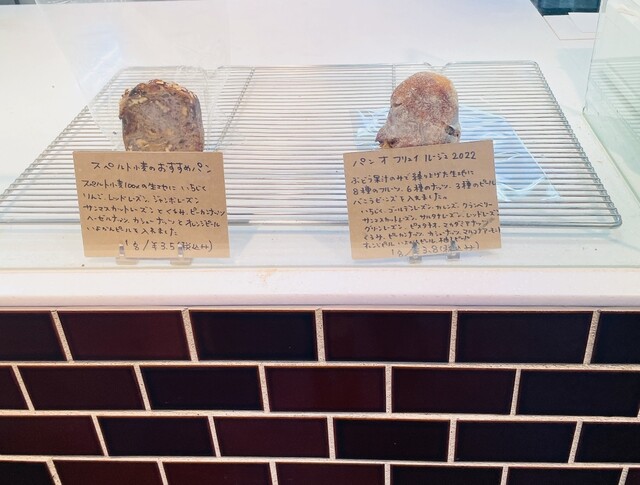 スペルト小麦のおすすめパン
スペルト小麦100%の生地に いちじく
りんご、レッドレーズン、ジャンボレーズン
サンマスカットレーズン とくるみ、ピーカンナッツ
ヘーゼルナッツ、カシューナッツ と オレンジピール
いよかんピール を入れました
パン オ フリュイ ルージュ 2022
ぶどう果汁のみで 捏ね上げた生地に
8種のフルーツ、6種のナッツ、3種のピール
バニラビーンズ を入れました。
いちじく、ゴールデンレーズン、カレンズ、クランベリー
サンマスカットレーズン、サルタナレーズン、レッドレーズン
グリーンレーズン、ピスタチオ、マカダミアナッツ
くるみ、ピーカンナッツ、カシューナッツ
オレンジピール